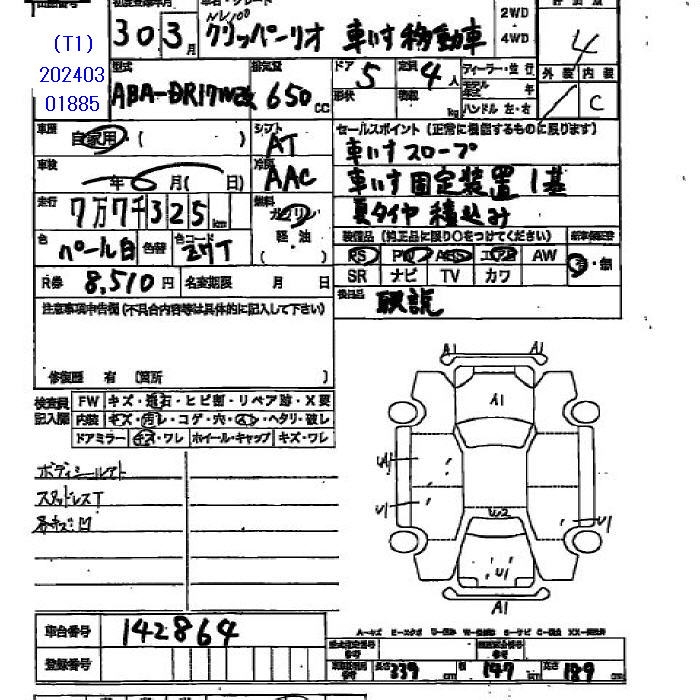 (T1)
202403
01885
初度登録年月
車名・グレード
評価点
30年3月
NV100
クリッパーリオ 車いす移動車
2WD
4WD
4
型式
ABA-DR17W改
排気量
650cc
ドア 5
定員 4人
形状
積載 kg
ディーラー・並行
モデル 年
ハンドル 左・右
外装 内装
C
車歴 自家用・( )
シフト AT
車検 年6月( 日)
冷房 AAC
走行 7万7千325km
燃料 ガソリン
軽油
( )
色 パール白 色替 色コード Z7T
R券 8,510円 名変期限 月 日
セールスポイント(正常に機能するものに限ります)
車いすスロープ
車いす固定装置1基
夏タイヤ積込み
装備品(純正品に限り○をつけてください)
新車保証書
PS PW ABS エアB AW
有・無
SR ナビ TV カワ
後日品 取説
注意事項申告欄(不具合内容等は具体的に記入して下さい)
修復歴 有 (箇所
検査員
記入欄
FW キズ・飛石・ヒビ割・リペア跡・X要
内装 キズ・汚レ・コゲ・穴・スレ・ヘタリ・破レ
ドアミラー キズ・ワレ ホイール・キャップ キズ・ワレ
ボディシールアト
スタッドレスT
各キズ凹
A1
A1
A1
U1
U1
U1
W2
U1
A1
車台番号 142864
登録番号
長さ 339cm 幅 147cm 高さ 189cm